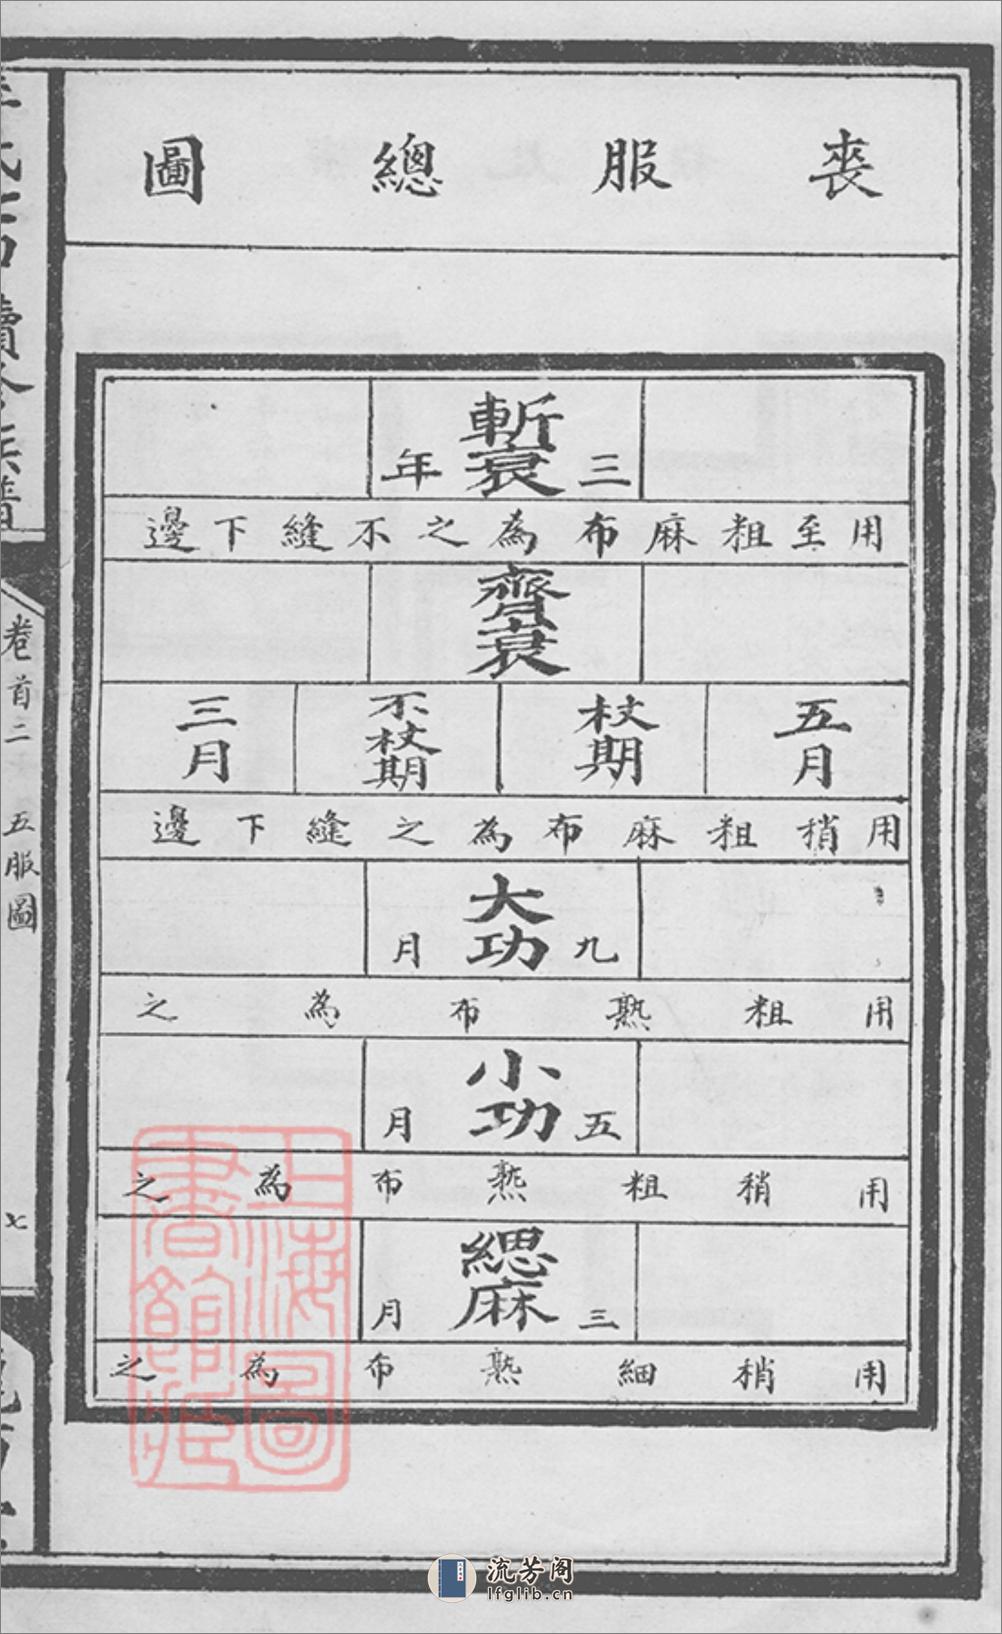 喪服總圖
三年 斬衰
用至粗麻布為之不縫下邊
齊衰
五月 杖期 不杖期 三月
用稍粗麻布為之縫下邊
九月 大功
用粗熟布為之
五月 小功
用稍粗熟布為之
三月 緦麻
用稍細熟布為之
卷首二 五服圖
七
上海圖書館藏
流芳阁
lfglib.cn